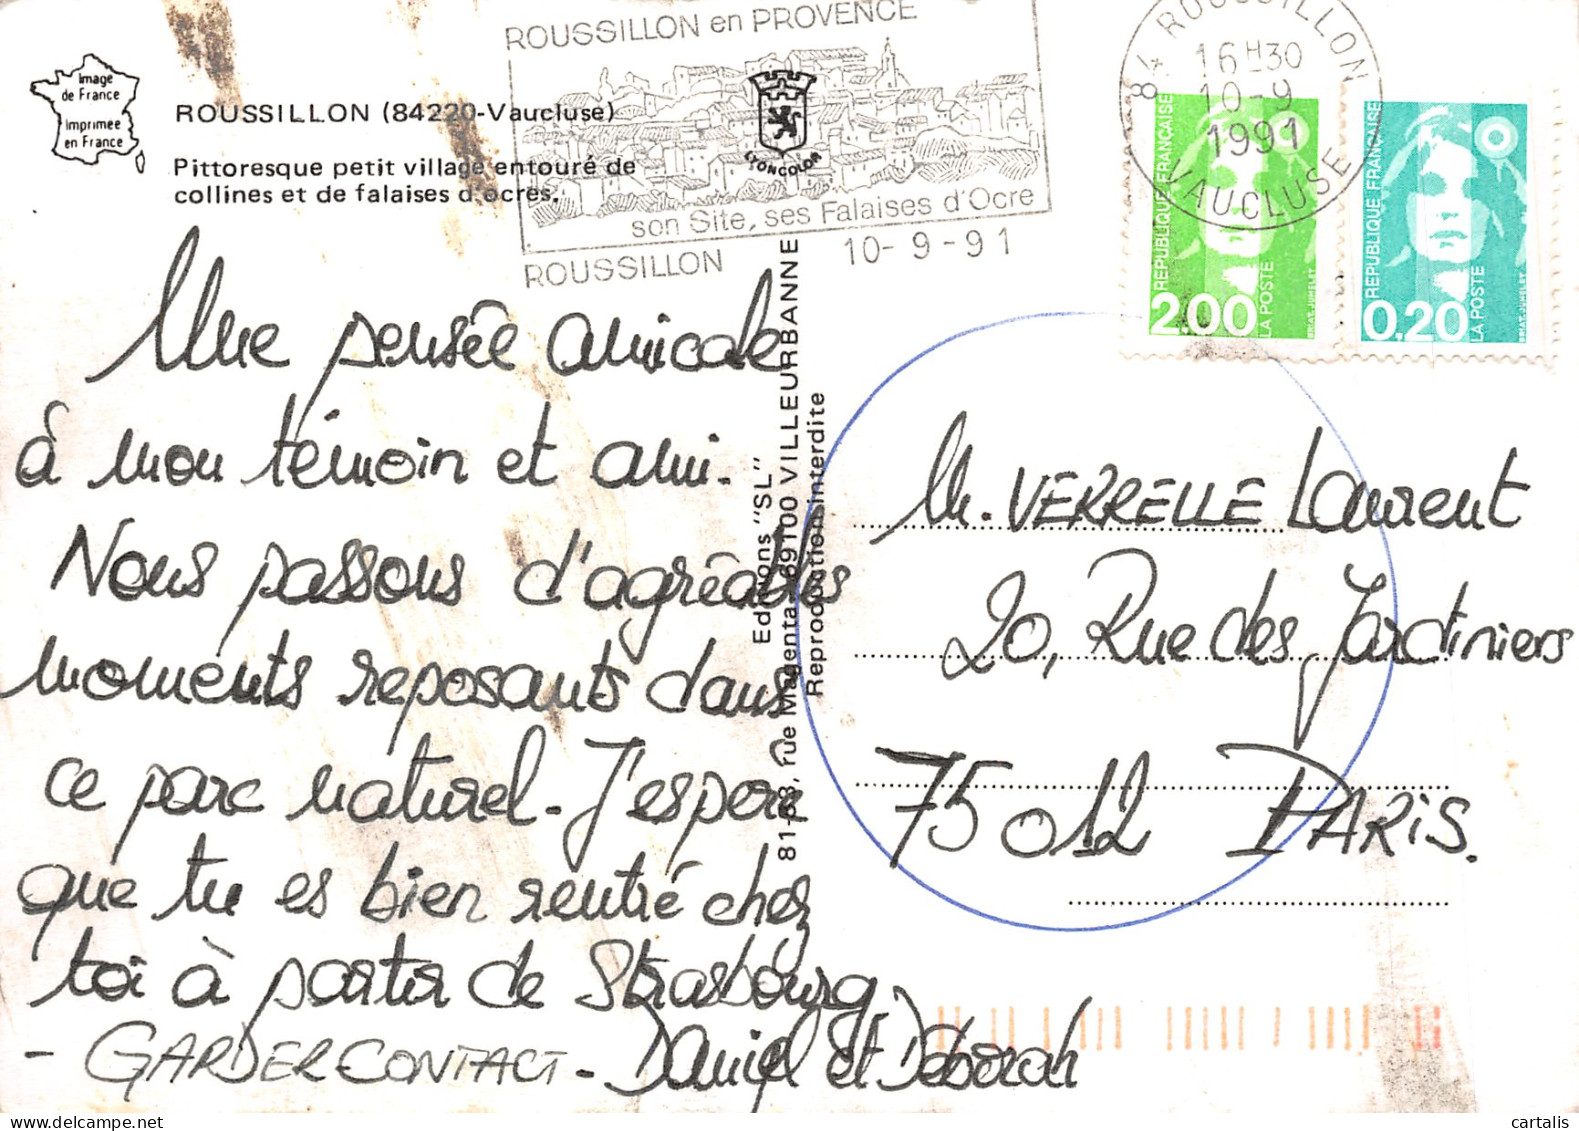 Image
de France
Imprimee
en France
ROUSSILLON (84220-Vaucluse)
Pittoresque petit village entouré de
collines et de falaises d'ocres.
ROUSSILLON en PROVENCE
LYONCOLOR
son Site, ses Falaises d'Ocre
ROUSSILLON
10- 9 -91
84 ROUSSILLON
16H30
10-9
1991
VAUCLUSE
REPUBLIQUE FRANÇAISE
2.00
LA POSTE
BRIAT.JUMELET
REPUBLIQUE FRANÇAISE
0,20
LA POSTE
BRIAT.JUMELET
Une pensée amicale
à mon témoin et ami.
Nous passons d'agréables
moments reposants dans
ce parc naturel - J'espère
que tu es bien rentré chez
toi à partir de Strasbourg
- GARDER CONTACT - Daniel et Déborah
Editions "SL"
81-83, rue Magenta 69100 VILLEURBANNE
Reproduction interdite
M. VERRELLE Laurent
20, Rue des Jardiniers
75012 PARIS.
cartalis